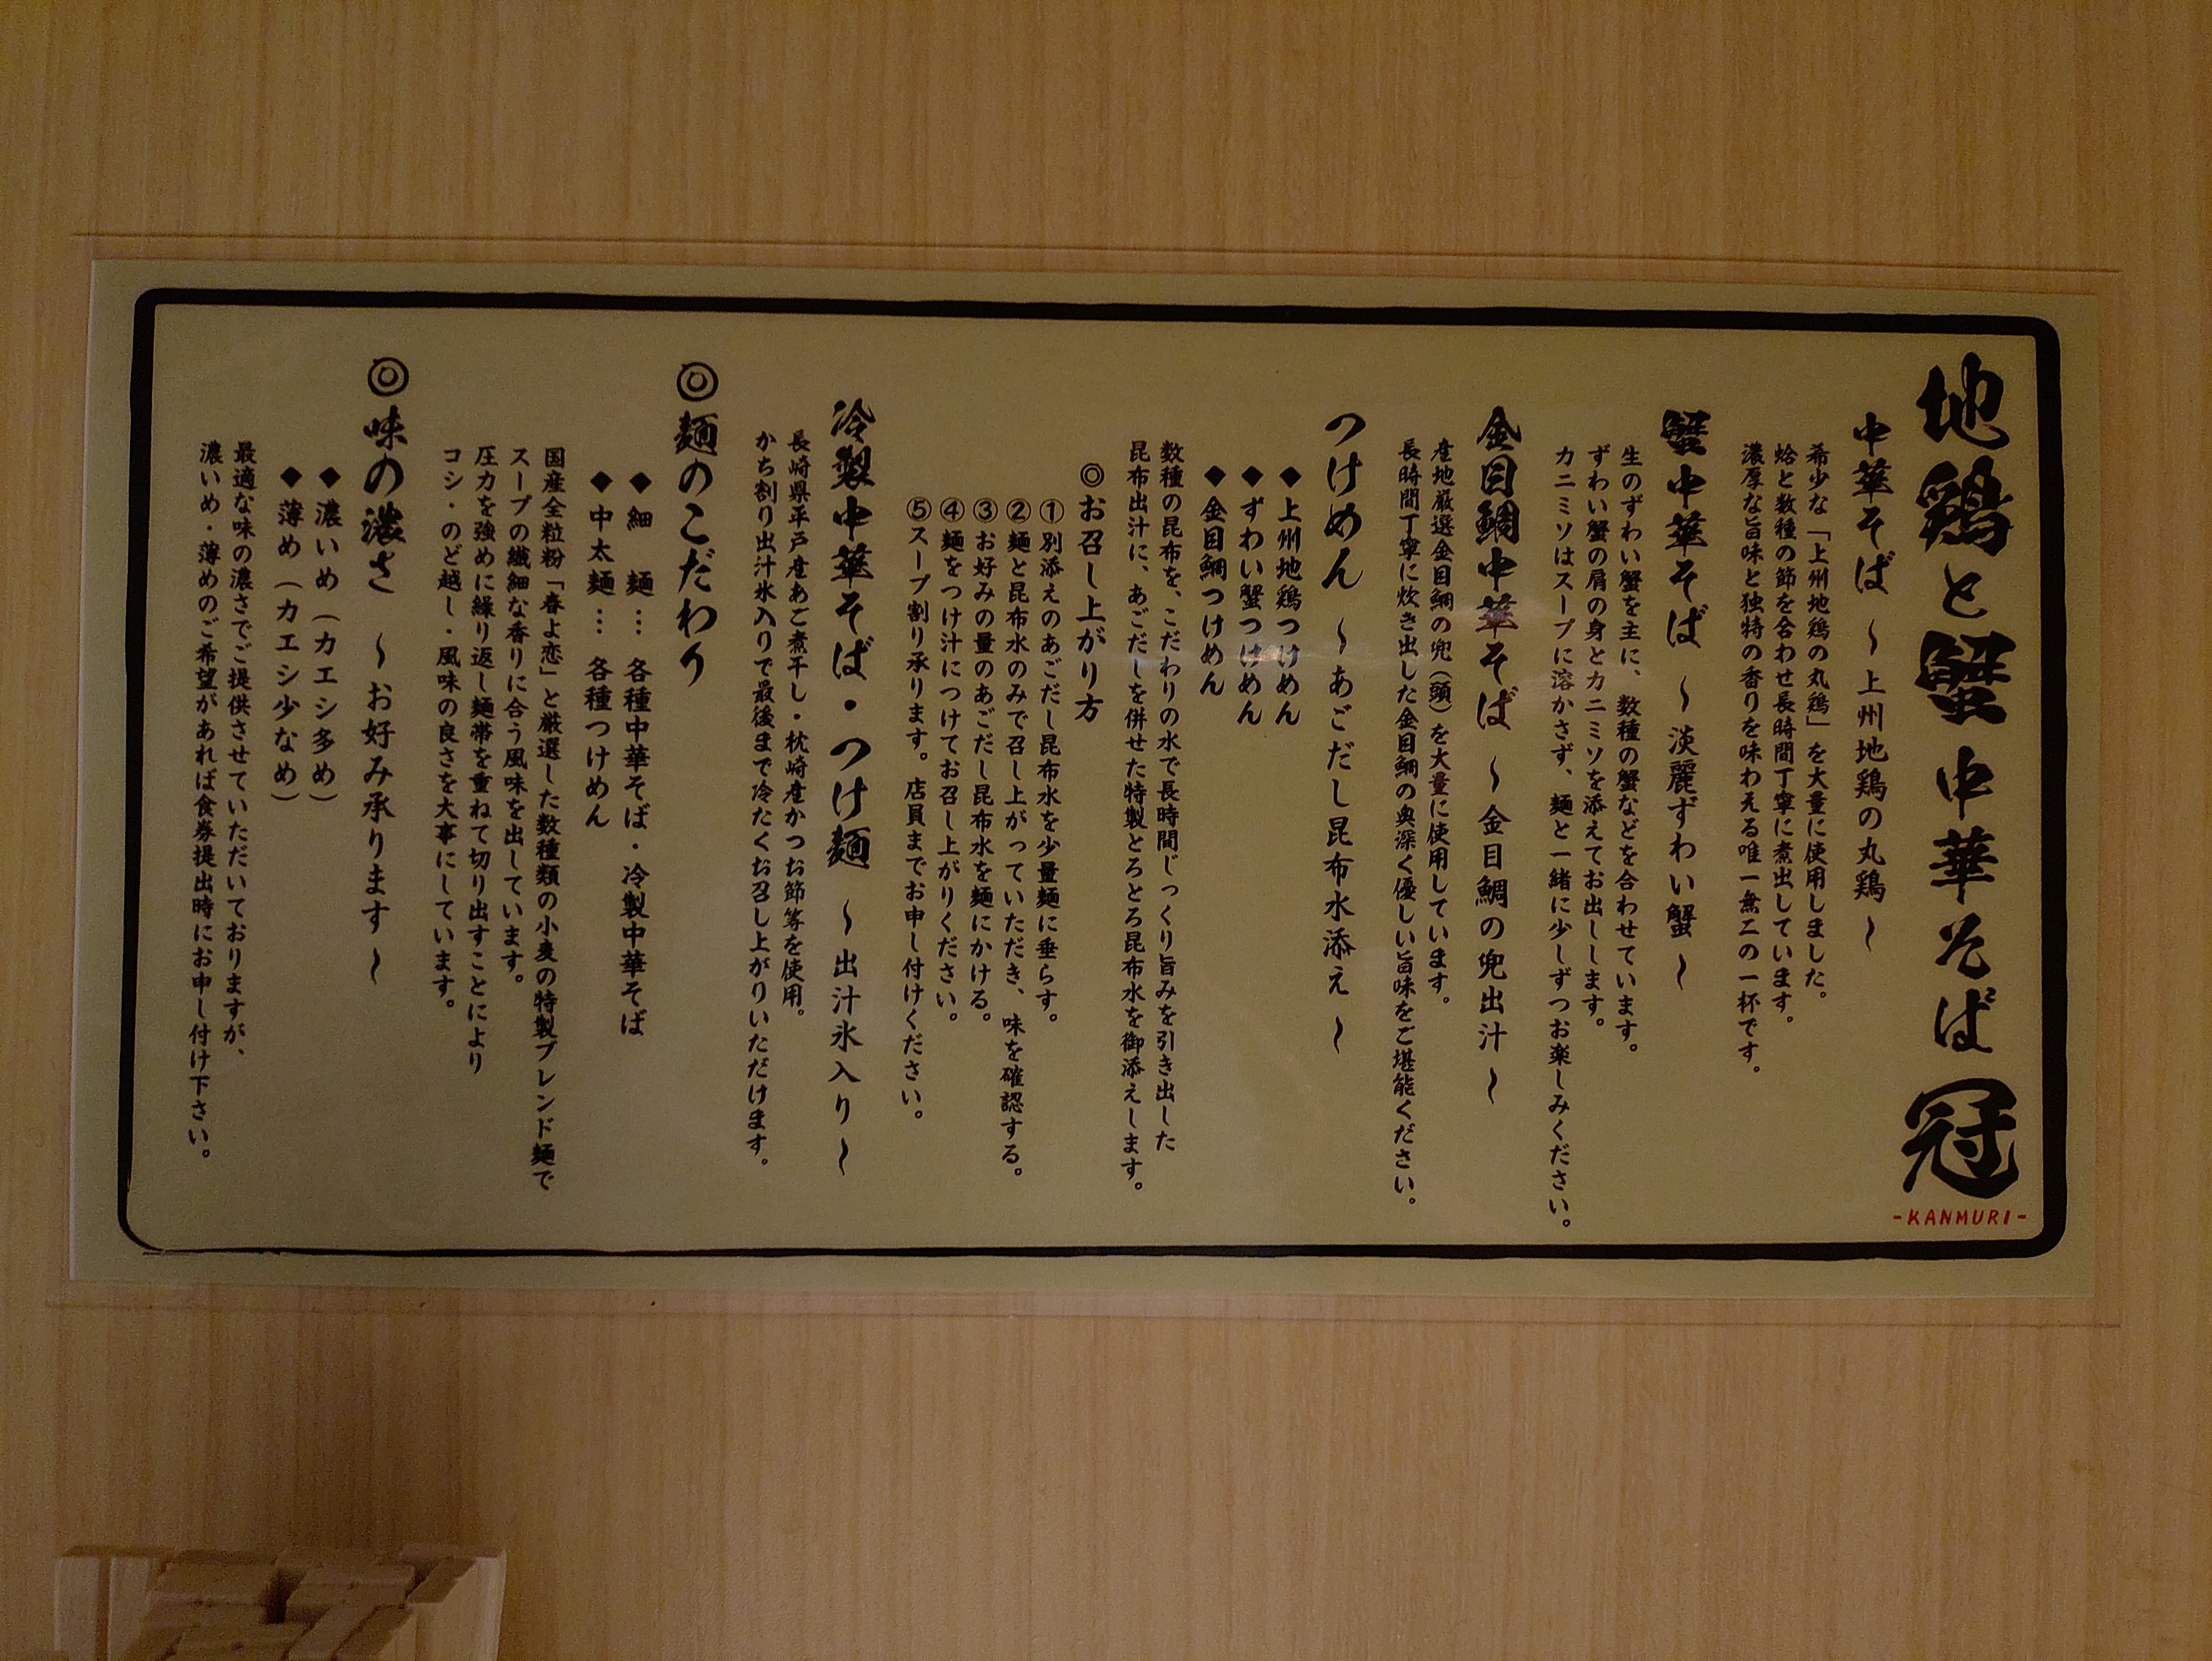 地鶏と蟹中華そば 冠
-KANMURI-
中華そば 〜上州地鶏の丸鶏〜
希少な「上州地鶏の丸鶏」を大量に使用しました。
蛤と数種の節を合わせ長時間丁寧に煮出しています。
濃厚な旨味と独特の香りを味わえる唯一無二の一杯です。
蟹中華そば 〜淡麗ずわい蟹〜
生のずわい蟹を主に、数種の蟹などを合わせています。
ずわい蟹の肩の身とカニミソを添えてお出しします。
カニミソはスープに溶かさず、麺と一緒に少しずつお楽しみください。
金目鯛中華そば 〜金目鯛の兜出汁〜
産地厳選金目鯛の兜(頭)を大量に使用しています。
長時間丁寧に炊き出した金目鯛の奥深く優しい旨味をご堪能ください。
つけめん 〜あごだし昆布水添え〜
◆上州地鶏つけめん
◆ずわい蟹つけめん
◆金目鯛つけめん
数種の昆布を、こだわりの水で長時間じっくり旨みを引き出した
昆布出汁に、あごだしを併せた特製とろとろ昆布水を御添えします。
◎お召し上がり方
①別添えのあごだし昆布水を少量麺に垂らす。
②麺と昆布水のみで召し上がっていただき、味を確認する。
③お好みの量のあごだし昆布水を麺にかける。
④麺をつけ汁につけてお召し上がりください。
⑤スープ割り承ります。店員までお申し付けください。
冷製中華そば・つけ麺 〜出汁氷入り〜
長崎県平戸産あご煮干し・枕崎産かつお節等を使用。
かち割り出汁氷入りで最後まで冷たくお召し上がりいただけます。
◎麺のこだわり
◆細 麺… 各種中華そば・冷製中華そば
◆中太麺… 各種つけめん
国産全粒粉「春よ恋」と厳選した数種類の小麦の特製ブレンド麺で
スープの繊細な香りに合う風味を出しています。
圧力を強めに繰り返し麺帯を重ねて切り出すことにより
コシ・のど越し・風味の良さを大事にしています。
◎味の濃さ 〜お好み承ります〜
◆濃いめ(カエシ多め)
◆薄め(カエシ少なめ)
最適な味の濃さでご提供させていただいておりますが、
濃いめ・薄めのご希望があれば食券提出時にお申し付け下さい。